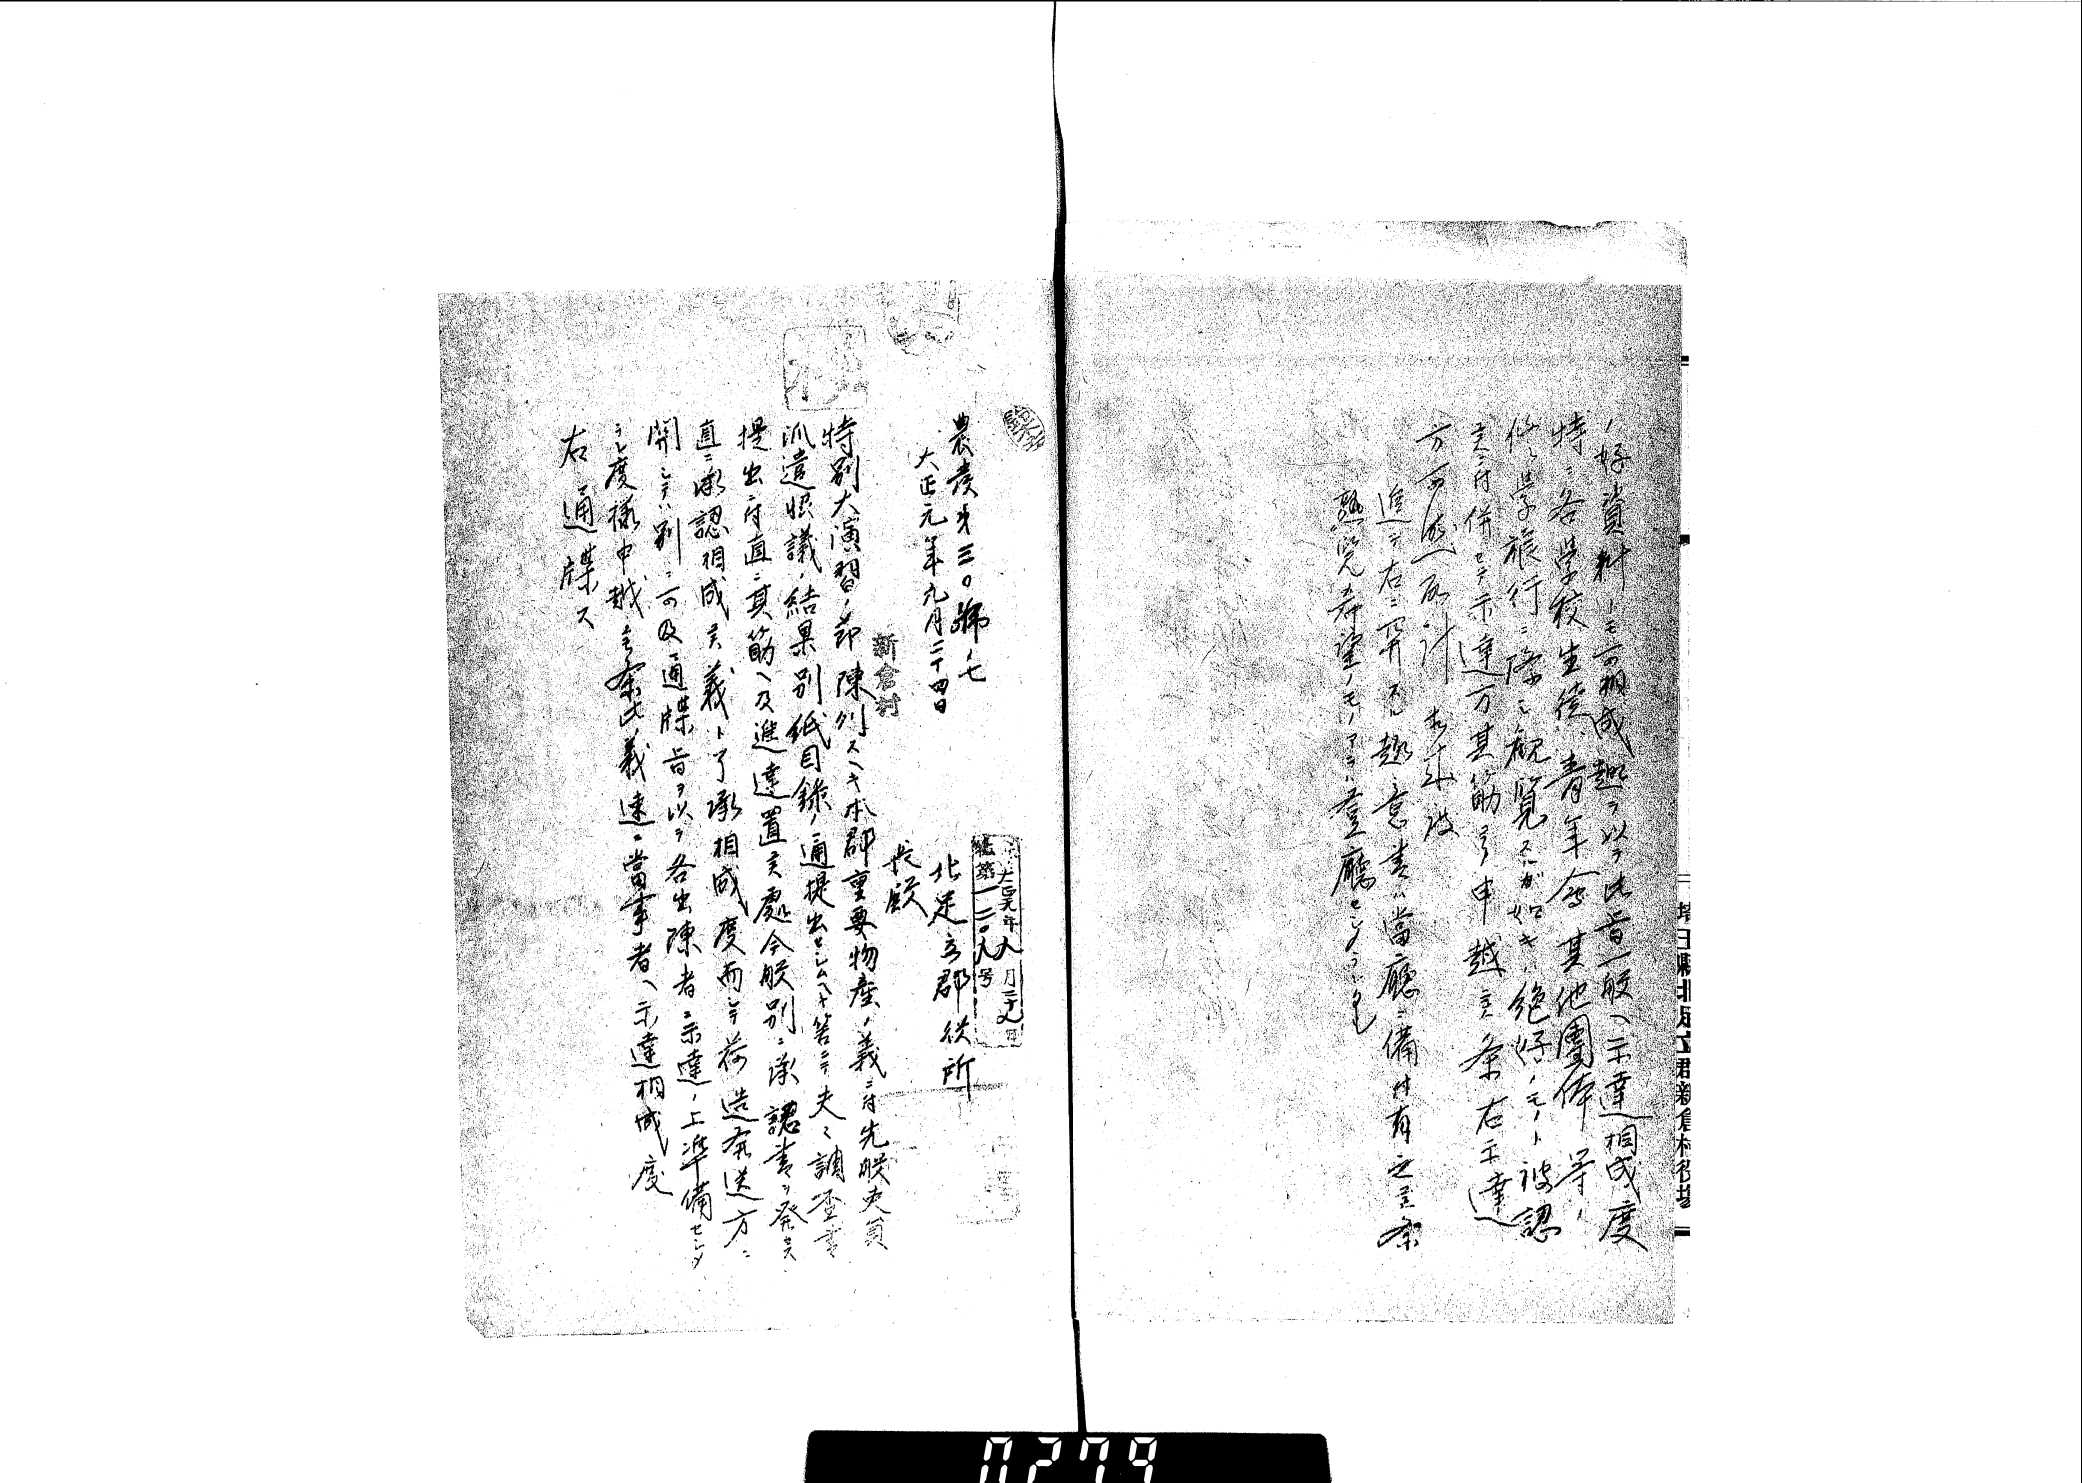 ノ好資料トモ可相成趣ヲ以テ此旨一般ヘ示達相成度
特ニ各学校生徒、青年会其他團体等ノ
修学旅行ニ際シ観覧スルガ如キハ絶好ノモノト被認
候ニ付併セテ示達方其筋ヨリ申越候条右示達
方可然
追テ右ニ関スル趣意書ハ當廳ニ備付有之候条
熟覧希望ノモノアラハ登廳セシメラレ度
埼玉縣北足立郡新倉村役場
農發第三〇號ノ七
大正元年九月二十四日
大正元年九月二十九日
第一三〇九号
北足立郡役所
新倉村
長殿
特別大演習ノ節陳列スヘキ本郡重要物産ノ義ニ付先般吏員
派遣照議ノ結果別紙目録ノ通提出セシムヘキ筈ニテ夫々調査書
提出ニ付直ニ其筋ヘ及進達置候處今般別ニ承認書ヲ発セス
直ニ承認相成候義ト了承相成度而シテ荷造発送方ニ
関シテハ別ニ可及通牒旨ヲ以テ各出陳者ニ示達ノ上準備セシメ
ラレ度様申越候条此義速ニ當事者ヘ示達相成度
右通牒ス
0279